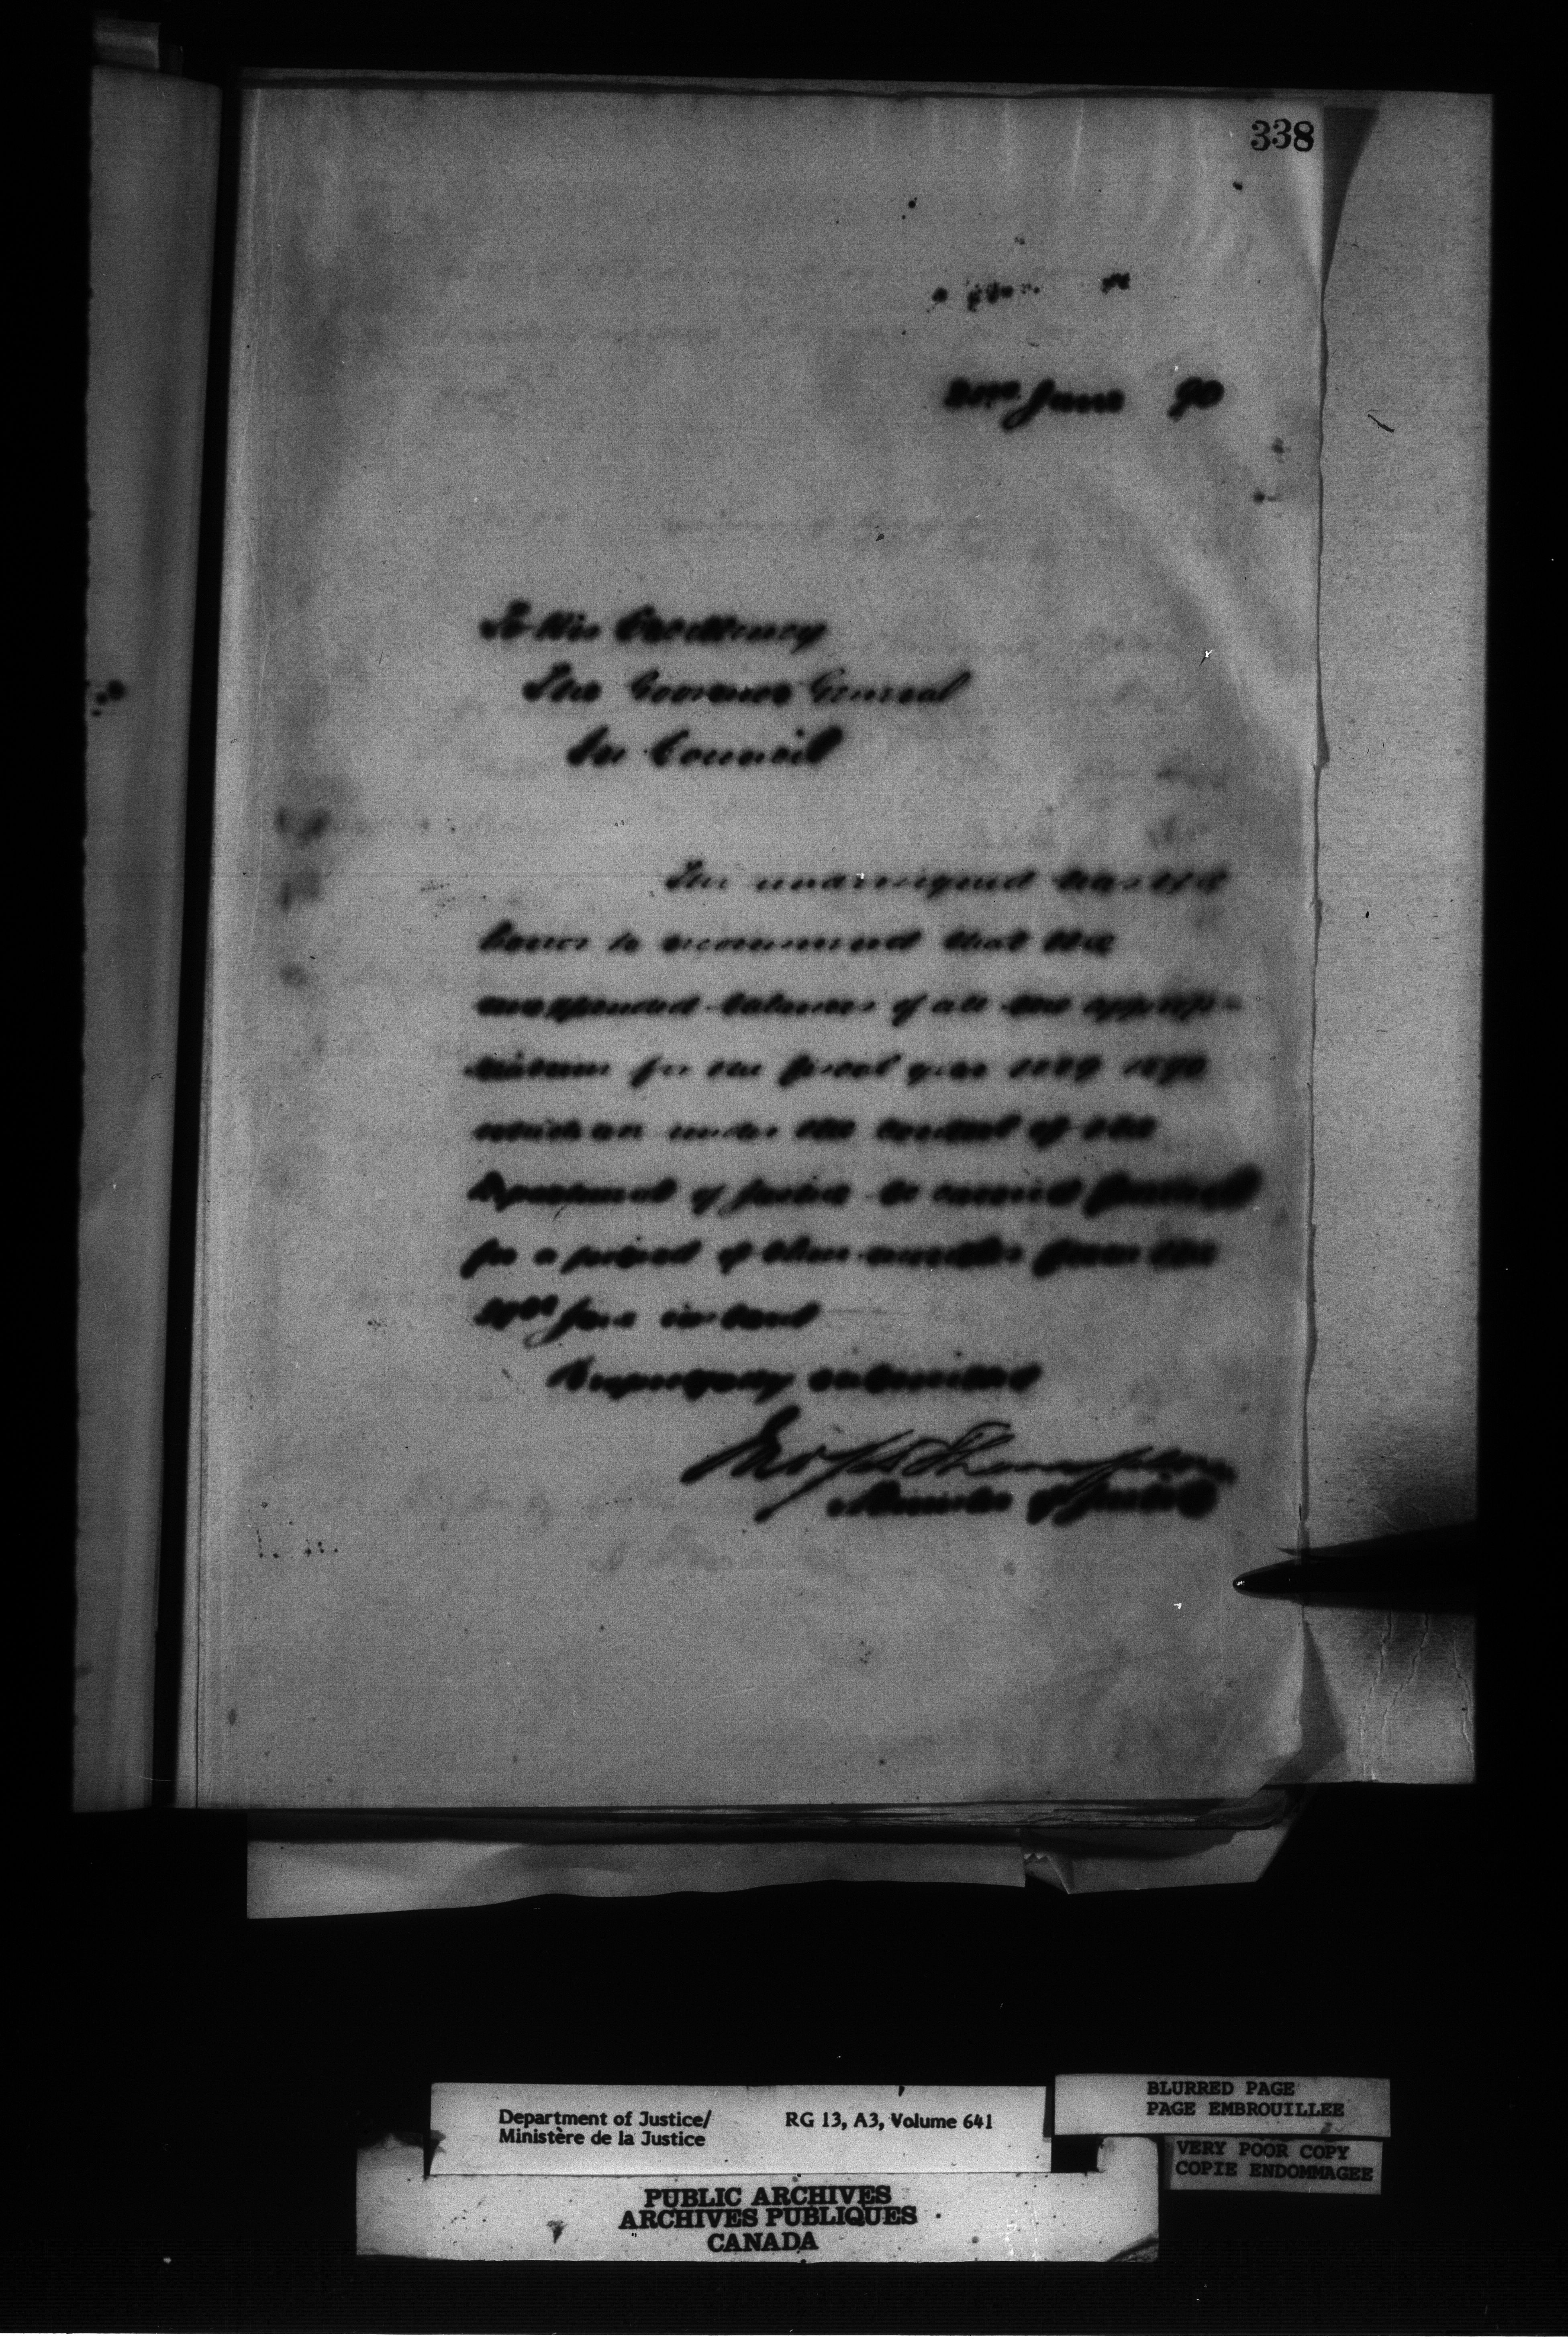 338
June 90
To His Excellency
The Governor General
In Council
The undersigned has the
honor to recommend that the
unexpended balances of all the approp-
riations for the fiscal year 1889 1890
which are under the control of the
Department of Justice be carried forward
for a period of three months from the
June instant
Respectfully submitted
Jno S D Thompson
Minister of Justice
Department of Justice/
Ministère de la Justice
RG 13, A3, Volume 641
BLURRED PAGE
PAGE EMBROUILLEE
VERY POOR COPY
COPIE ENDOMMAGEE
PUBLIC ARCHIVES
ARCHIVES PUBLIQUES
CANADA